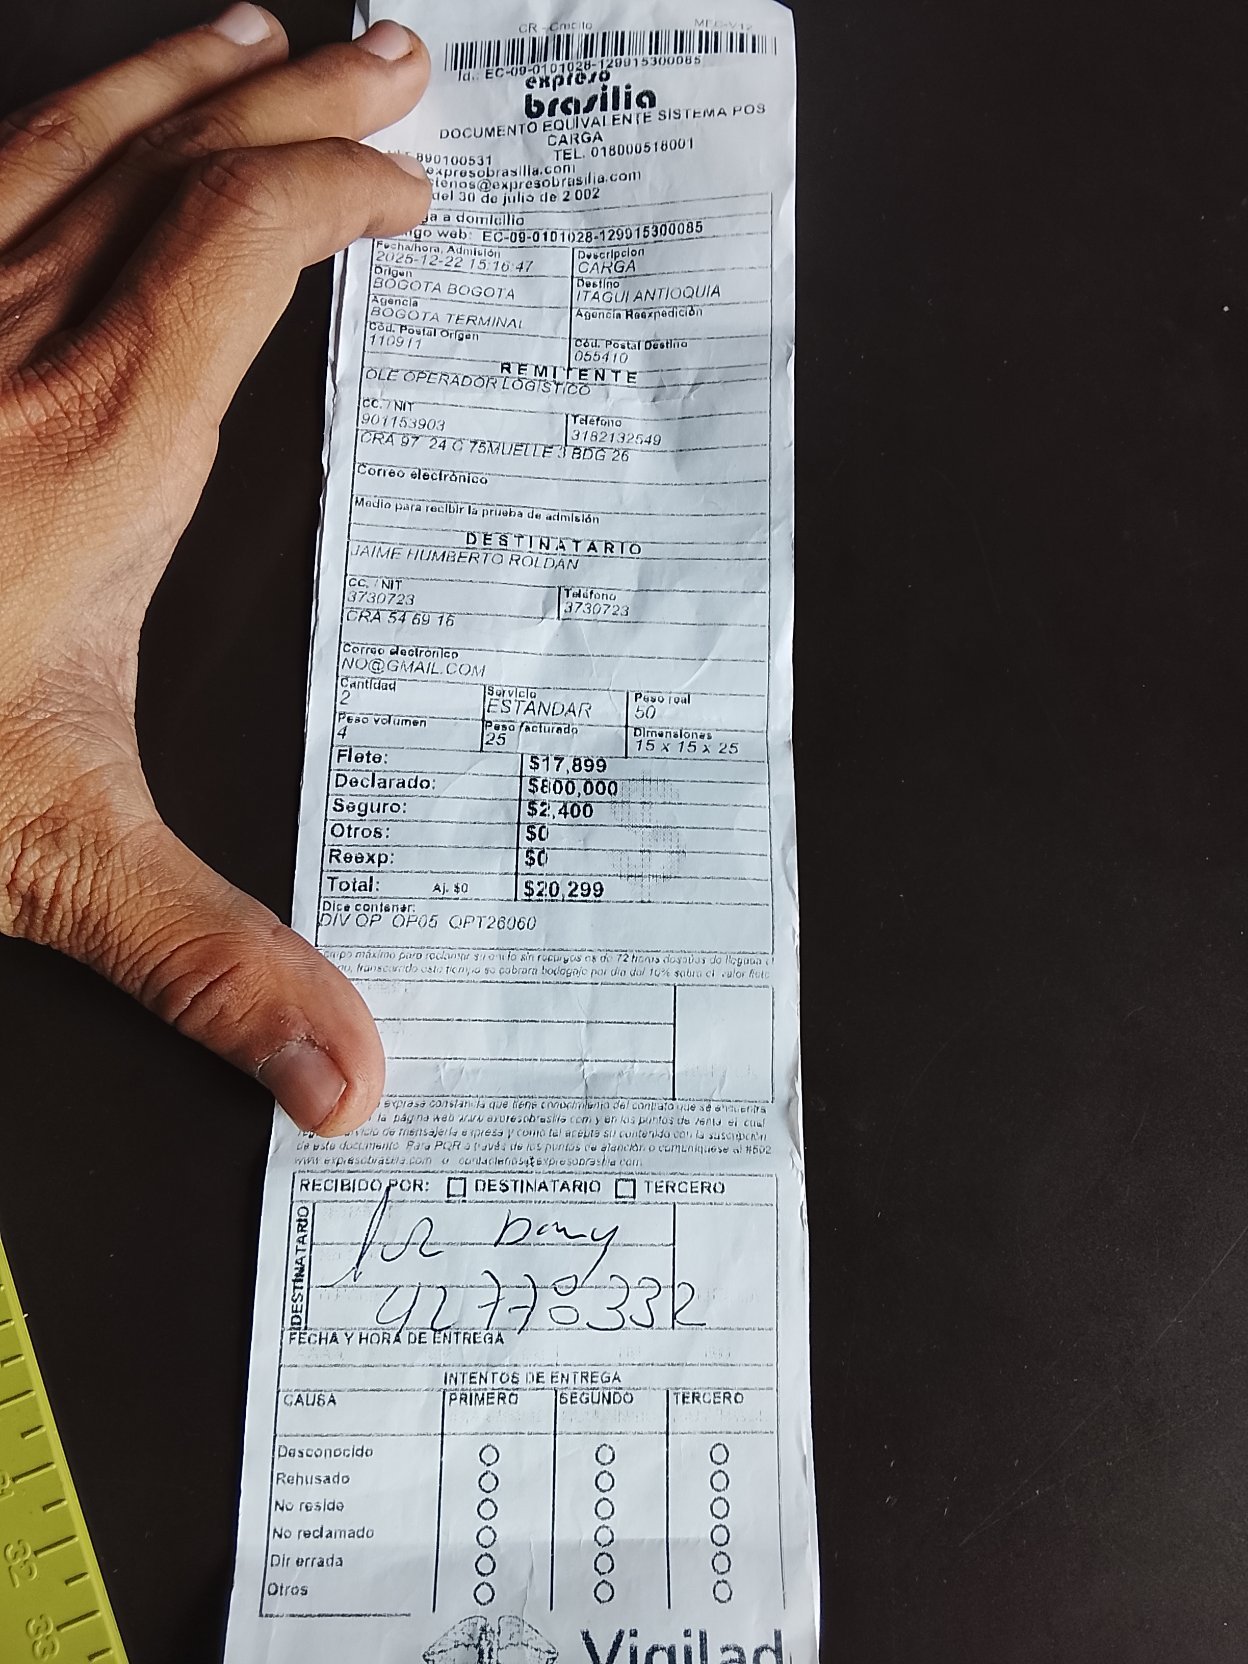 CR - Credito MEC-V12
Id.: EC-09-0101028-129915300085
expreso
brasilia
DOCUMENTO EQUIVALENTE SISTEMA POS
CARGA
890100531 TEL. 018000518001
expresobrasilia.com
tenos@expresobrasilia.com
del 30 de julio de 2 002
ga a domicilio
igo web: EC-09-0101028-129915300085
Fecha/hora. Admisión Descripcion
2025-12-22 15:16:47 CARGA
Origen Destino
BOGOTA BOGOTA ITAGUI ANTIOQUIA
Agencia Agencia Reexpedición
BOGOTA TERMINAL
Cód. Postal Origen Cód. Postal Destino
110911 055410
REMITENTE
OLE OPERADOR LOGISTICO
CC. / NIT Teléfono
901153903 3182132549
CRA 97 24 C 75MUELLE 3 BDG 26
Correo electrónico
Medio para recibir la prueba de admisión
DESTINATARIO
JAIME HUMBERTO ROLDAN
CC. / NIT Teléfono
3730723 3730723
CRA 54 69 16
Correo electrónico
NO@GMAIL.COM
Cantidad Servicio Peso real
2 ESTANDAR 50
Peso volumen Peso facturado Dimensiones
4 25 15 x 15 x 25
Flete: $17,899
Declarado: $800,000
Seguro: $2,400
Otros: $0
Reexp: $0
Total: Aj. $0 $20,299
Dice contener:
DIV OP OP05 OPT26060
máximo para reclamar su envío sin recargos es de 72 horas después de llegada
transcurrido este tiempo se cobrara bodegaje por día del 10% sobre el valor flete
expresa constancia que tiene conocimiento del contrato que se encuentra
la página web www.expresobrasilia.com y en los puntos de venta el cual
de mensajería expresa y como tal acepta su contenido con la suscripción
de este documento. Para PQR a través de los puntos de atención o comuníquese al #502
www.expresobrasilia.com o contactenos@expresobrasilia.com
RECIBIDO POR: DESTINATARIO TERCERO
DESTINATARIO
Dany
92770332
FECHA Y HORA DE ENTREGA
INTENTOS DE ENTREGA
CAUSA PRIMERO SEGUNDO TERCERO
Desconocido
Rehusado
No reside
No reclamado
Dir errada
Otros
Vigilad
32
33